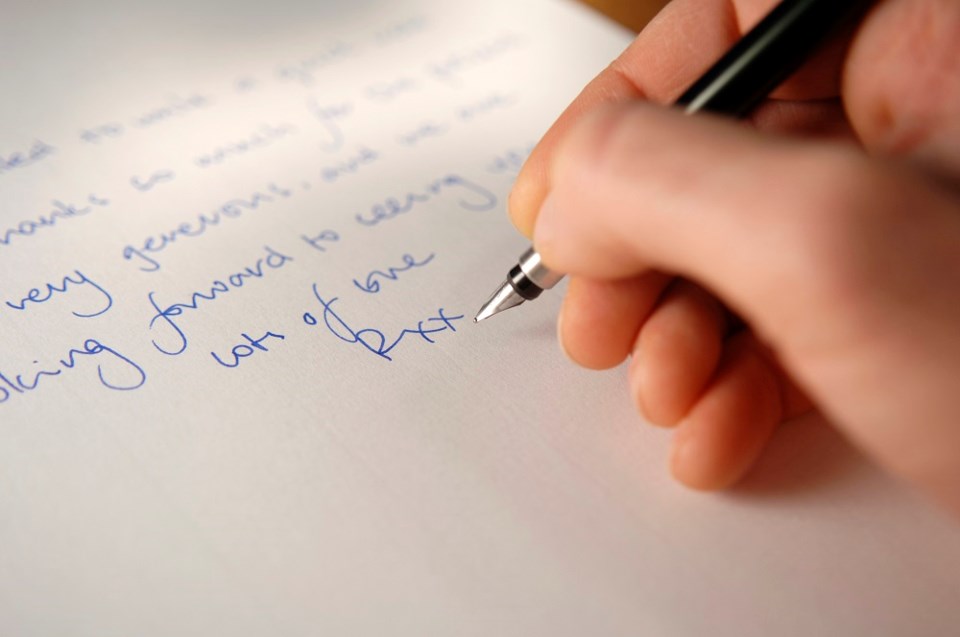 to write a quick
hanks so much for
very generous, and we are
oking forward to seeing
lots of love
Rxx